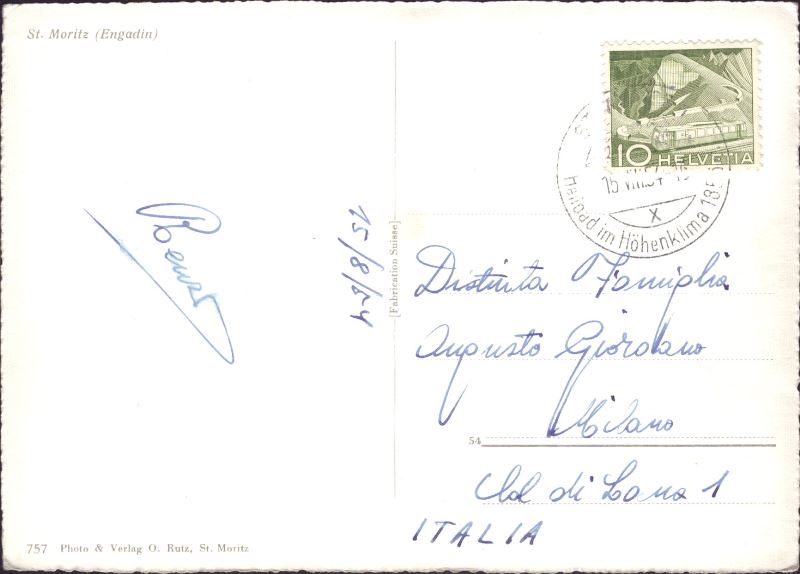 St. Moritz (Engadin)
15/8/54
[Fabrication Suisse]
10 HELVETIA
15.VIII.54
Heilbad im Höhenklima 1856 m
X
Distinta Famiglia
Augusto Giordano
Milano
54
Col di Lana 1
ITALIA
757 Photo & Verlag O. Rutz, St. Moritz